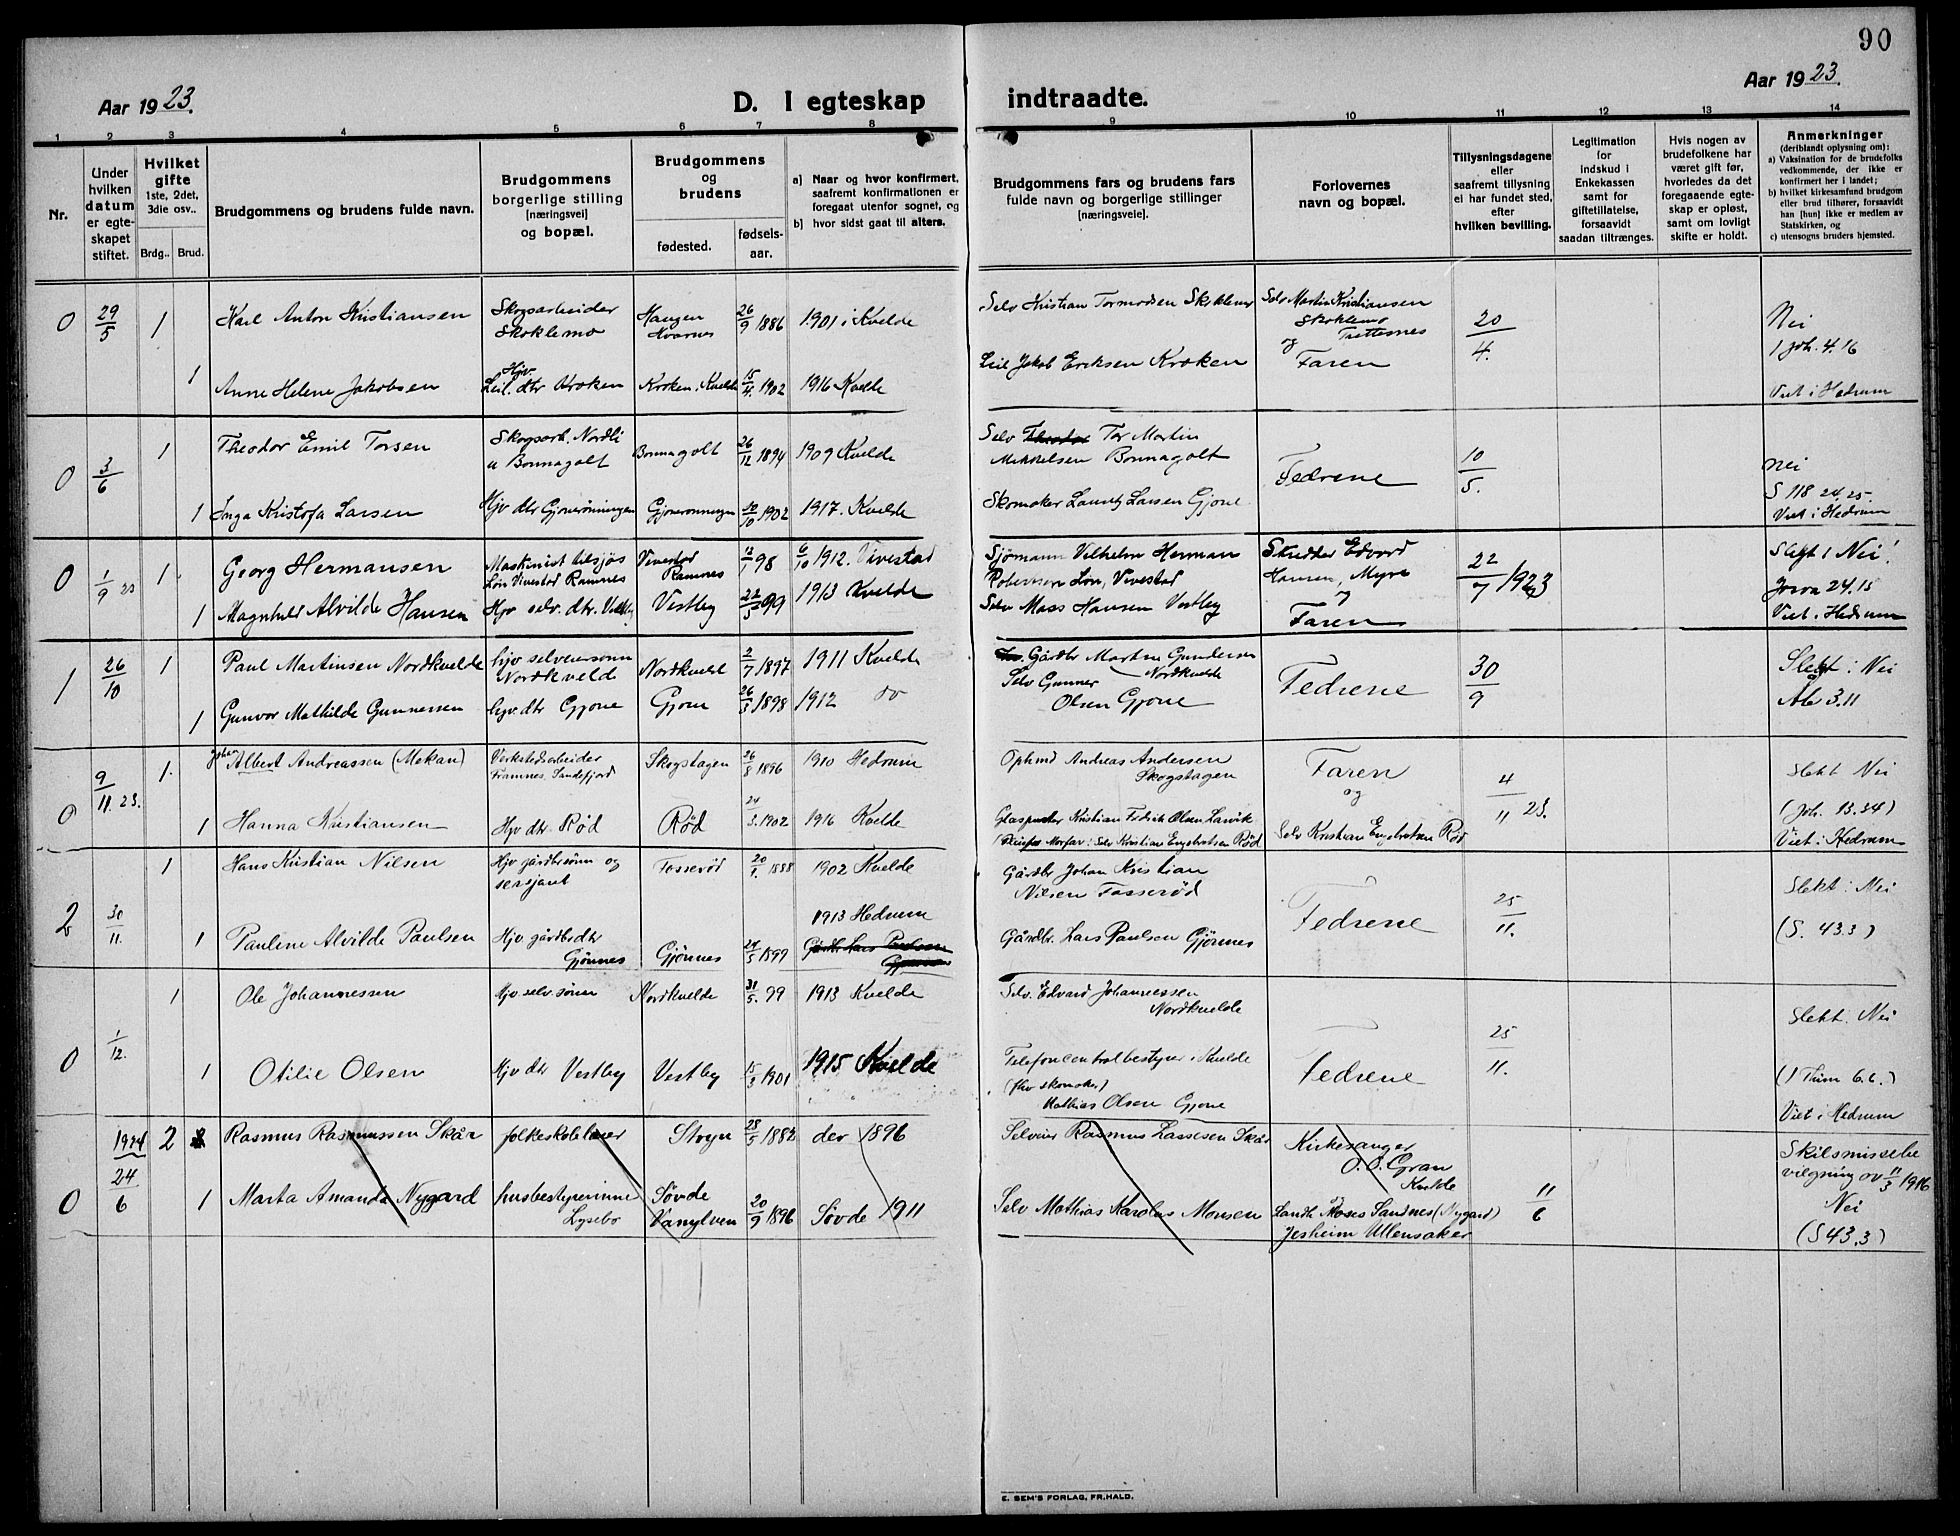 90
Aar 1923.
D. I egteskap
indtraadte.
Aar 1923.
1 2 3 4 5 6 7 8 9 10 11 12 13 14
Nr.
Under
hvilken
datum
er egte-
skapet
stiftet.
Hvilket
gifte
1ste, 2det,
3die osv..
Brdg.. Brud.
Brudgommens og brudens fulde navn.
Brudgommens
borgerlige stilling
[næringsvei]
og bopæl.
Brudgommens
og
brudens
fødested.
fødsels-
aar.
a) Naar og hvor konfirmert,
saafremt konfirmationen er
foregaat utenfor sognet, og
b) hvor sidst gaat til alters.
Brudgommens fars og brudens fars
fulde navn og borgerlige stillinger
[næringsveie].
Forlovernes
navn og bopæl.
Tillysningsdagene
eller
saafremt tillysning
ei har fundet sted,
efter
hvilken bevilling.
Legitimation
for
indskud i
Enkekassen
samt for
giftetillatelse,
forsaavidt
saadan tiltrænges.
Hvis nogen av
brudefolkene har
været gift før,
hvorledes da det
foregaaende egte-
skap er opløst,
samt om lovligt
skifte er holdt.
Anmerkninger
(deriblandt oplysning om):
a) Vaksination for de brudefolks
vedkommende, der ikke er
konfirmert her i landet;
b) hvilket kirkesamfund brudgom
eller brud tilhører, forsaavidt
han [hun] ikke er medlem av
Statskirken, og
c) utensogns bruders hjemsted.
0 29/5 1 Karl Anton Kristiansen Skogsarbeider Skoklemo Haugen Kvarnes 26/9 1886 1901 i Kvelde Selv Kristian Tormodsen Selv Martin Kristiansen Skoklemo 20/4. Nei
1 Joh. 4.16
1 Anne Helene Jakobsen Hjv. Leil. dtr Kroken Kroken i Kvelde 15/4 1902 1916 Kvelde Leil Jakob Eriksen Kroken og Faren
Viet i Hedrum
0 3/6 1 Theodor Emil Torsen Skogsarb. Nordli u Bonnagolt Bonnagolt 26/12 1894 1909 Kvelde Selv Theodor Tor Martin Mikkelsen Bonnagolt Fedrene 10/5. Nei
S 118 24.25.
1 Inga Kristofa Larsen Hjv dtr Gjonerønningen Gjonerønningen 20/10 1902 1917. Kvelde Skomaker Larsen Gjone
Viet i Hedrum
0 1/9 23 1 Georg Hermansen Maskinist tilsjøs Løn Vivestad Ramnes Vivestad Ramnes 98 6/10 1912. Vivestad Sjømann Vilhelm Herman Robertsen Løn, Vivestad Edvard Hansen, Myra 22/7 1923 Slegt i Nei!
Josva 24.15
1 Magnhild Alvilde Hansen Hjv selv. dtr. Vestby Vestby 22/5 99 1913 Kvelde Selv Mass Hansen Vestby og Faren
Viet i Hedrum
1 26/10 1 Paul Martinsen Nordkvelde hjv selveiersønn Nordkveld Nordkveld 2/7 1897 1911 Kvelde Gårdbr Martin Gundersen Nordkvelde Fedrene 30/9 Slekt: Nei
Åb 3.11
1 Gunvor Mathilde Gunnersen hjv. dtr Gjone Gjone 26/3 1898 1912 do Selv Gunner Olsen Gjone
0 9/11. 23. 1. Johan Albert Andreassen (Mekan) Verkstedsarbeider Framnes. Sandefjord Skogstagen 26/8 1896 1910 Hedrum Ophmd Andreas Andersen Skogstagen Faren og 4/11 23. Slekt Nei
(Joh. 13.34)
1 Hanna Kristiansen Hjv dtr. Rød Rød 24/3. 1902 1916 Kvelde Glaspuster Kristian Fredrik Olsen Larvik
Morfar: Selv Kristian Engebretsen Rød Selv Kristian Engebretsen Rød
Viet i Hedrum
2 30/11. 1 Hans Kristian Nilsen Hjv gårdbrsønn og sersjant Fosserød 20/1. 1888 1902 Kvelde Gårdbr Johan Kristian Nilsen Fosserød Fedrene 25/11. Slekt: Nei
(S. 43.3)
1 Pauline Alvilde Paulsen Hjv gårdbrdtr Gjønnes Gjønnes 24/5 1899 1913 Hedrum Gårdbr Lars Paulsen Gjønnes Gårdbr. Lars Paulsen Gjønnes
0 1/12. 1 Ole Johannessen Hjv. selv. sønn Nordkvelde 31/5. 99 1913 Kvelde Selv. Edvard Johannessen Nordkvelde Fedrene 25/11. Slekt: Nei
(1 Thim 6.6.)
1 Otilie Olsen Hjv dtr Vestby Vestby 15/3 1901 1915 Kvelde Telefoncentralbestyrer i Kvelde (fhv skomak.) Mathias Olsen Gjone
Viet i Hedrum
0 1924 24/6 2 Rasmus Rasmussen Skår folkeskolelærer Stryn 28/5 1882 der 1896 Selveier Rasmus Lassesen Skår Kirkesanger O. O. Gran Kvelde 11/6 Skilsmissebe vilgning av 11/3 1916
1 Marta Amanda Nygard husbestyrerinne Lysebo Søvde Vanylven 20/9 1896 Søvde 1911 Selv Mathias Karolus Monsen Landh Moses Sandnes (Nygard) Jesheim Ullensaker Nei
(S 43.3)
E. SEM'S FORLAG, FR.HALD.